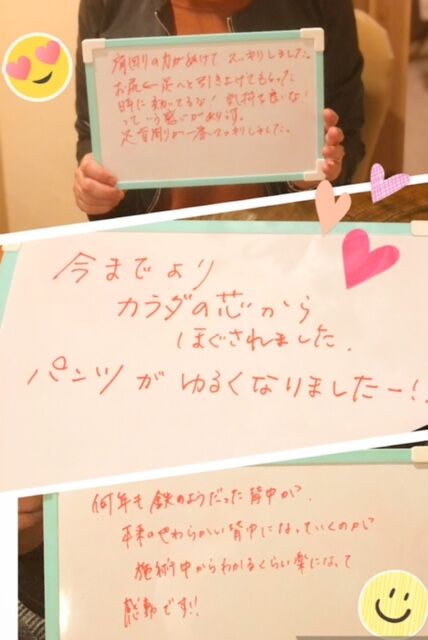 肩回りの力がぬけて スッキリしました。
お尻〜足へと引き上げてもらった
時に 動いてるな! 気持ち良いな!
っていう感じがあります。
足首周りが一番スッキリしました。
今までより
カラダの芯から
ほぐされました。
パンツが ゆるくなりましたー!!
何年も 鉄のようだった背中が、
本来のやわらかい背中になっていくのが
施術中からわかるくらい楽になって
感動です!!